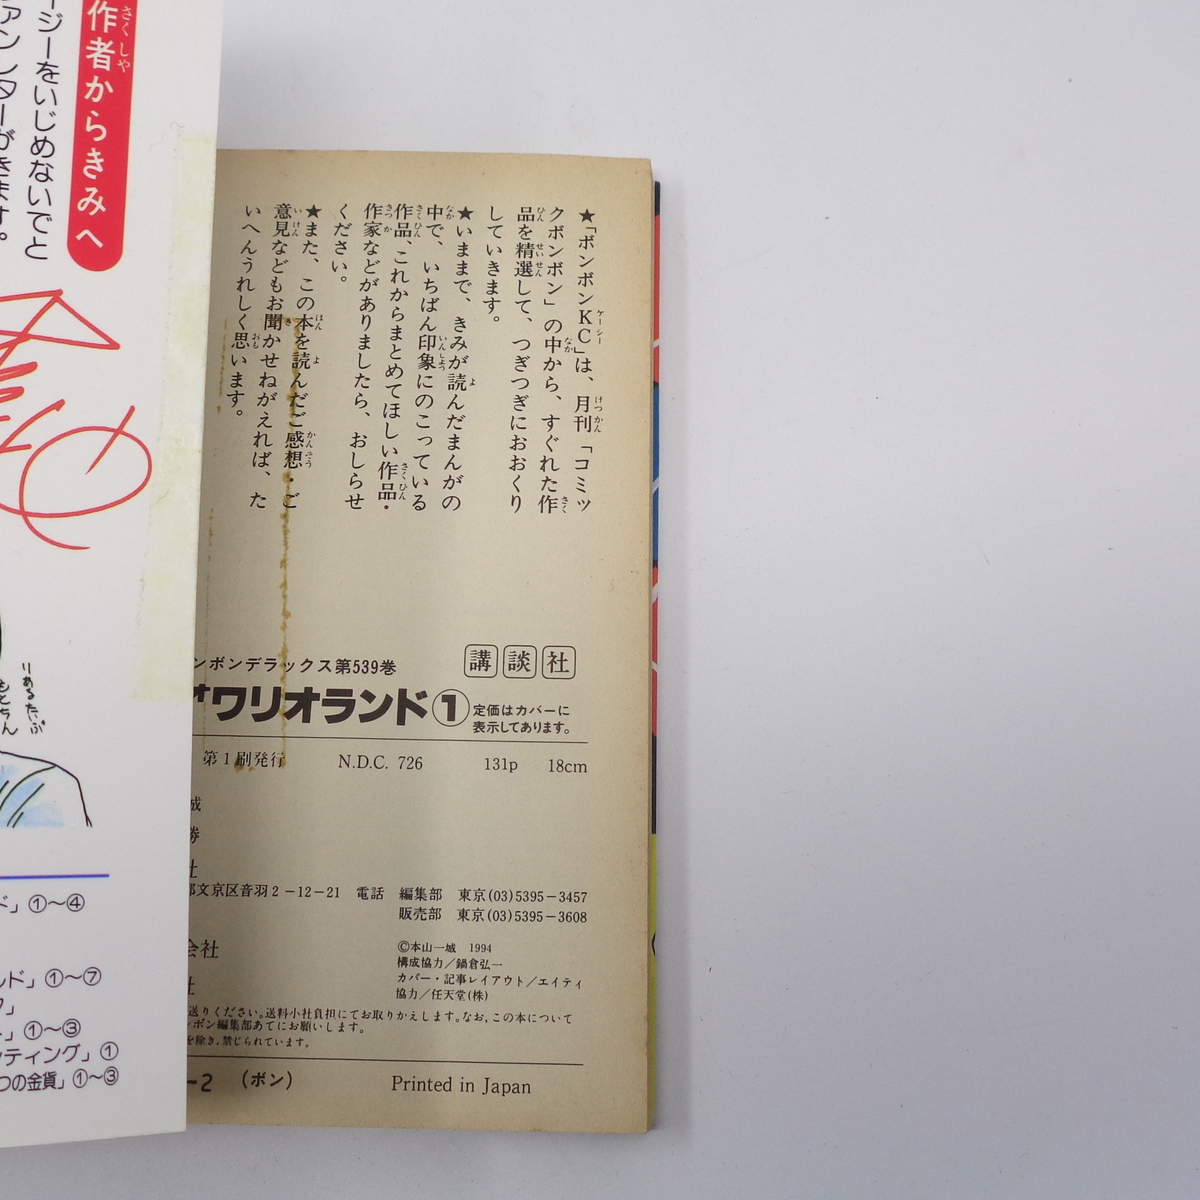 作者からきみへ
ージーをいじめないでと
ファンレターがきます。
★「ボンボンKC」は、月刊「コミッ
クボンボン」の中から、すぐれた作
品を精選して、つぎつぎにおおくり
していきます。
★いままで、きみが読んだまんがの
中で、いちばん印象にのこっている
作品、これからまとめてほしい作品・
作家などがありましたら、おしらせ
ください。
★また、この本を読んだご感想・ご
意見などもお聞かせねがえれば、た
いへんうれしく思います。
講談社
ンボンデラックス第539巻
オワリオランド①
定価はカバーに
表示してあります。
第1刷発行 N.D.C. 726 131p 18cm
城
勝
社
都文京区音羽2-12-21 電話 編集部 東京(03)5395-3457
販売部 東京(03)5395-3608
会社
社
©本山一城 1994
構成協力/鍋倉弘一
カバー・記事レイアウト/エイティ
協力/任天堂(株)
送りください。送料小社負担にてお取りかえします。なお、この本について
ンボン編集部あてにお願いします。
を除き、禁じられています。
-2 (ボン) Printed in Japan
ド」①〜④
ンド」①〜⑦
ク」
」①〜③
ッティング」①
つの金貨」①〜③